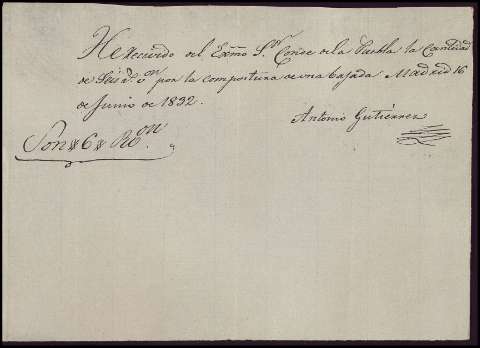 He recivido del Exmo. Sn. Conde de la Puebla la Cantidad
de seis rs. vn. por la compostura de una bajada Madrid 16
de Junio de 1832.
Antonio Gutierrez
Son # 6 # Rs. on.